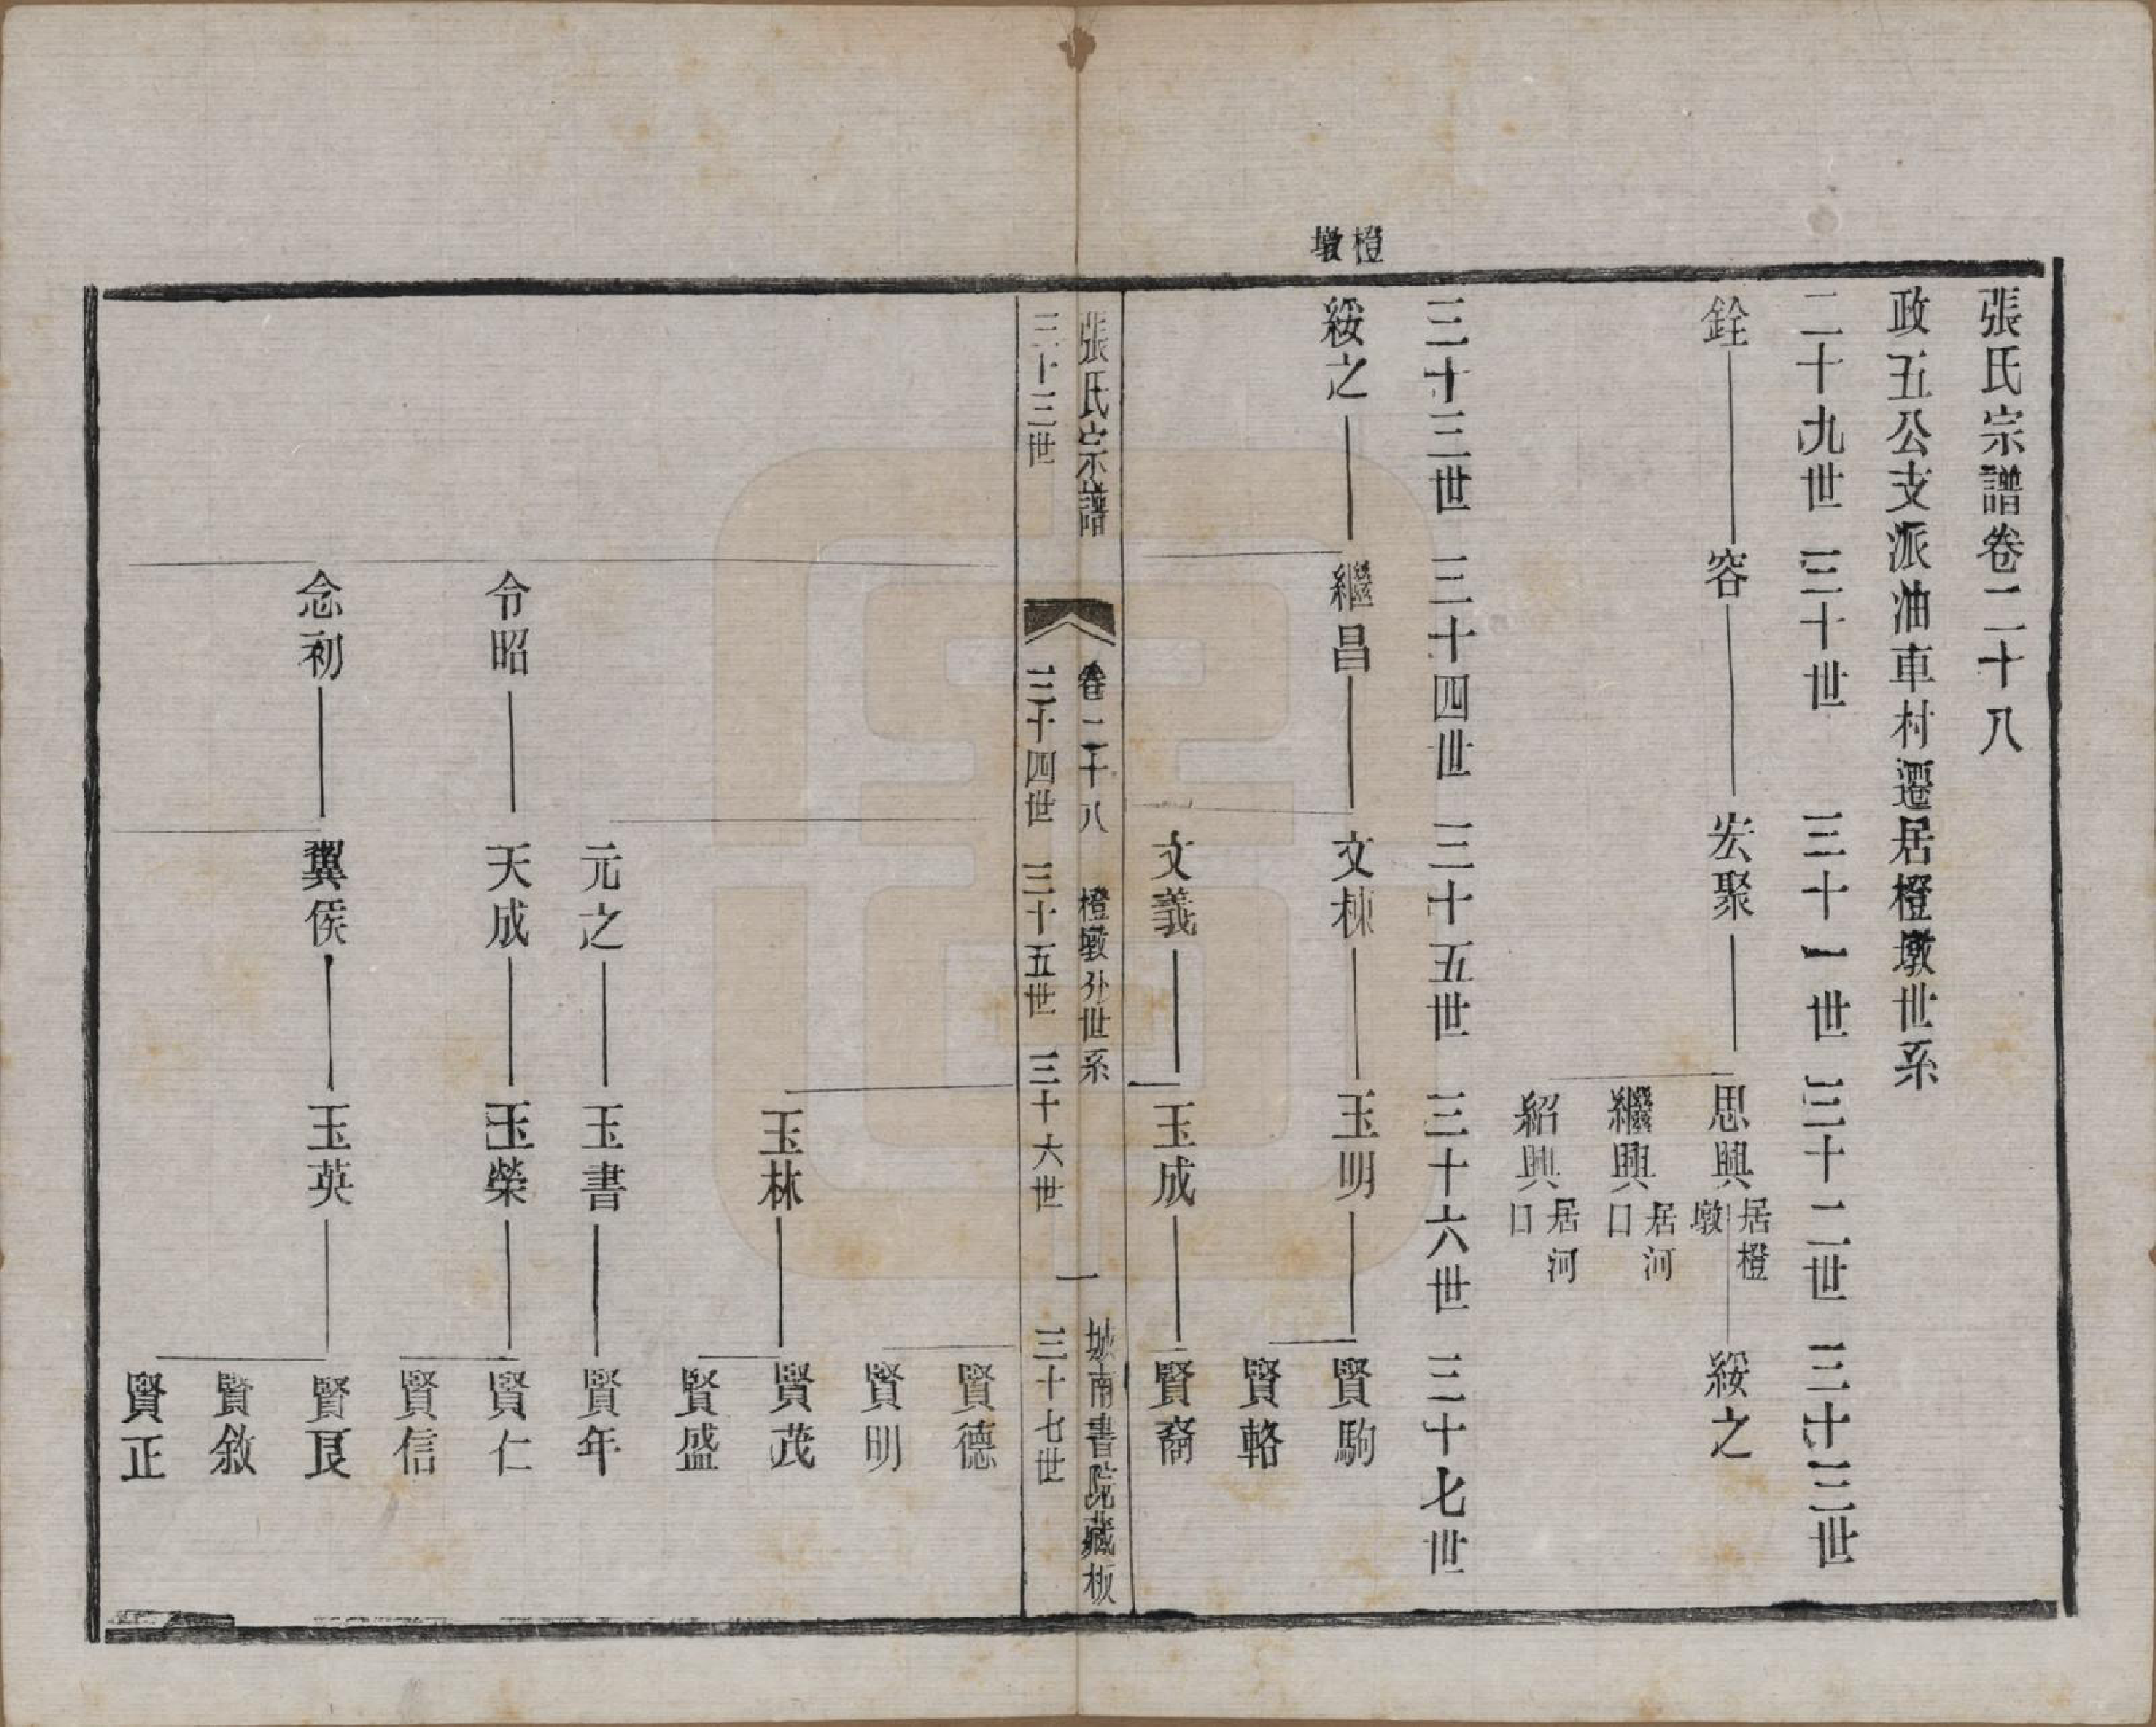 張氏宗譜卷二十八
政五公支派油車村遷居橙墩世系
二十九世 三十世 三十一世 三十二世 三十三世
銓 容 宏聚 思興 居橙墩 綏之
繼興 居河口
紹興 居河口
三十三世 三十四世 三十五世 三十六世 三十七世
橙墩
綏之 繼昌 文棟 玉明 賢駒
賢輅
文義 玉成 賢裔
張氏宗譜 卷二十八 橙墩分世系 一 城南書院藏板
三十三世 三十四世 三十五世 三十六世 三十七世
賢德
賢明
玉林 賢茂
賢盛
元之 玉書 賢年
令昭 天成 玉榮 賢仁
賢信
念初 翼侯 玉英 賢良
賢敘
賢正